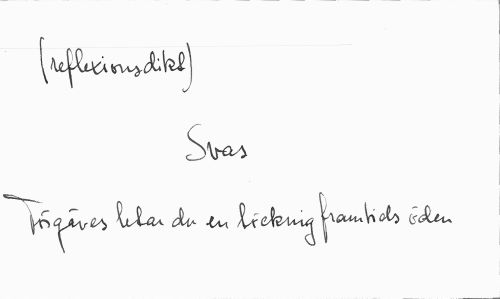 (reflexionsdikt)
Svar
Förgäves letar du en framtids öden